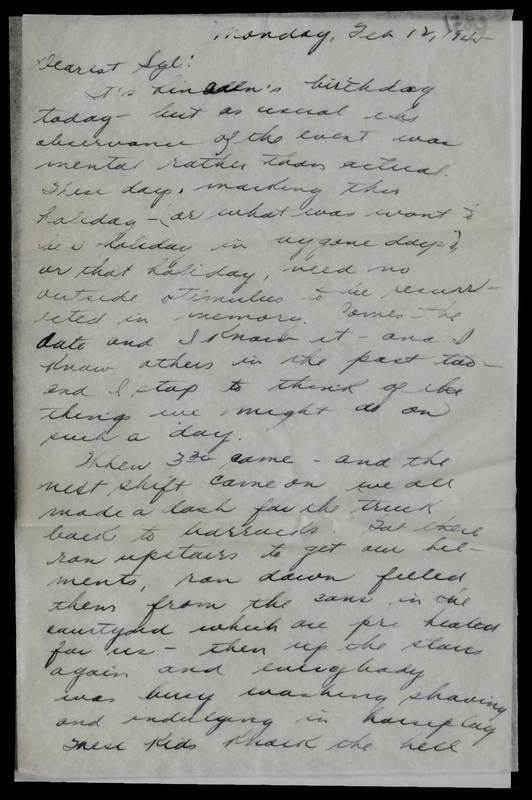 Monday, Feb 12, 1945
Dearest Syl:
It's Lincoln's birthday
today - but as usual the
observance of the event was
mental rather than actual.
These days, marking this
holiday - (or what was wont to
be a holiday in bygone days),
or that holiday, need no
outside stimulus to be resurr-
ected in memory. Comes the
date and I know it - and I
know others in the past too -
and I stop to think of the
things we might do on
such a day.
When 3:30 came - and the
next shift came on we all
made a dash for the truck
back to barracks
ran upstairs to get our hel-
ments, ran down filled
them from the cans in the
courtyard which are pre heated
for us - then up the stairs
again and everybody
was busy washing shaving
and indulging in horseplay
These kids knock the hell